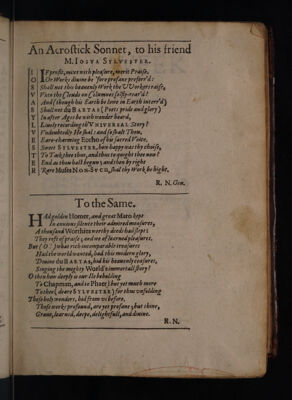 An Acrostick Sonnet, to his friend
M. IOSVA SYLVESTER.
I IF profit, mixt with pleasure, merit Praise,
O Or Works divine be 'fore profane preferr'd:
S Shall not this heavenly Work the Workers raise,
V Vnto the Clouds on Columnes selfy-rear'd?
A And (though his Earth be lowe in Earth interr'd)
S Shall not du BARTAS (Poets pride and glory)
Y In after Ages be with wonder heard,
L Lively recording th'VNIVERSAL Story?
V Vndoubtedly He shal: and so shalt Thou,
E Eare-charming Eccho of his sacred Voice.
S Sweet SYLVESTER, how happy was thy choise,
T To Task thee thus, and thus to quight thee now?
E End as thou hast begun; and then by right
R Rare Muses NON-SVCH, shal thy Work be hight.
R. N. Gen.
To the Same.
HAd golden Homer, and great Maro kept
In envious silence their admired measures,
A thousand Worthies worthy deeds had slept:
They reft of praise; and we of learned pleasures.
But (O!) what rich incomparable treasures
Had the world wanted, had this modern glory,
Divine du BARTAS, hid his heavenly ceasures,
Singing the mighty World's immortall story?
O then how deeply is our Ile beholding
To Chapman, and to Phaer! but yet much more
To thee (deare SYLVESTER) for thus vnfolding
Those holy wonders, hid from vs before.
Those works profound, are yet profane; but thine,
Grave, learned, deepe, delightfull, and divine.
R. N.